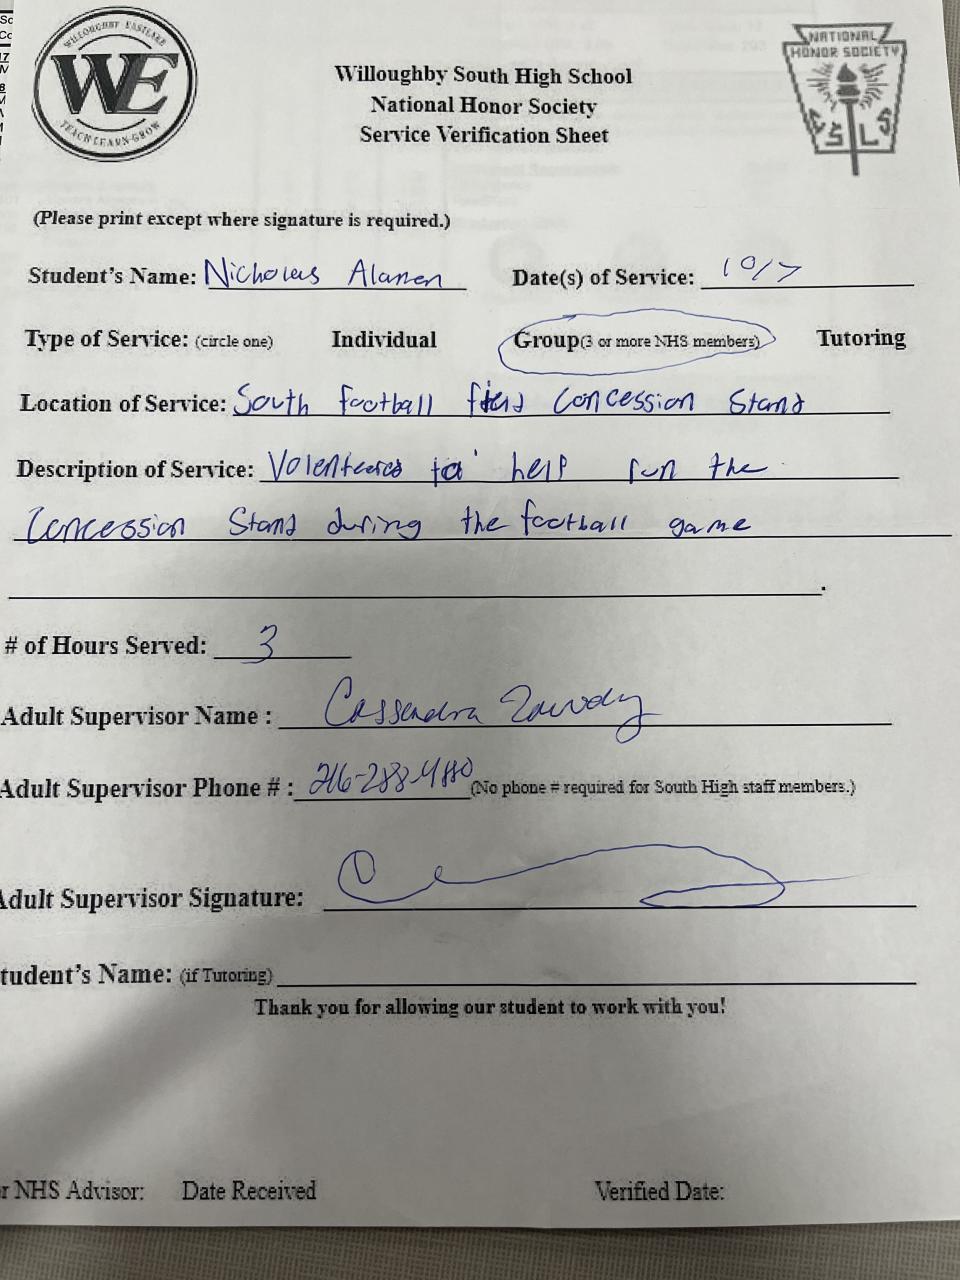 WILLOUGHBY EASTLAKE
WE
TEACH·LEARN·GROW
NATIONAL
HONOR SOCIETY
Willoughby South High School
National Honor Society
Service Verification Sheet
(Please print except where signature is required.)
Student's Name: Nicholas Alanen Date(s) of Service: 10/7
Type of Service: (circle one) Individual Group(3 or more NHS members) Tutoring
Location of Service: South football field Concession Stand
Description of Service: Volenteered to help run the
Concession Stand during the football game
# of Hours Served: 3
Adult Supervisor Name : Cassendra Zawody
Adult Supervisor Phone # : 216-288-4180 (No phone # required for South High staff members.)
Adult Supervisor Signature:
tudent's Name: (if Tutoring)
Thank you for allowing our student to work with you!
r NHS Advisor: Date Received Verified Date: